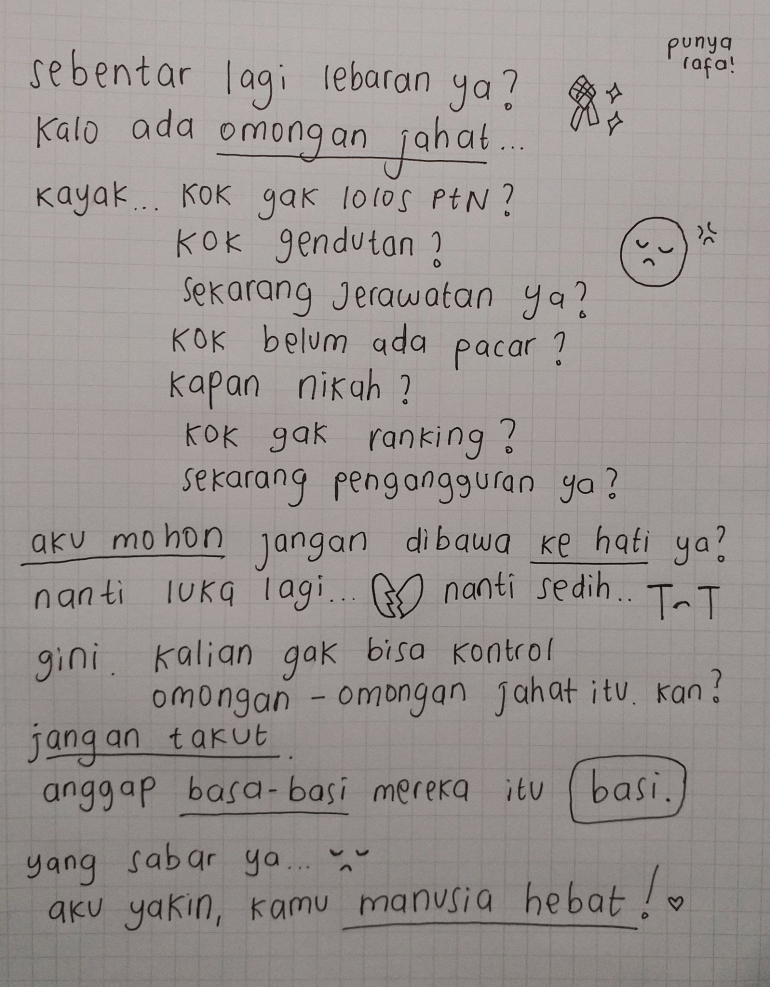 punya
rafa!
sebentar lagi lebaran ya?
kalo ada omongan jahat...
kayak... kok gak lolos PtN?
kok gendutan?
sekarang jerawatan ya?
kok belum ada pacar?
kapan nikah?
kok gak ranking?
sekarang pengangguran ya?
aku mohon jangan dibawa ke hati ya?
nanti luka lagi... nanti sedih.. T~T
gini. kalian gak bisa kontrol
omongan-omongan jahat itu. kan?
jangan takut.
anggap basa-basi mereka itu basi.
yang sabar ya...
aku yakin, kamu manusia hebat!